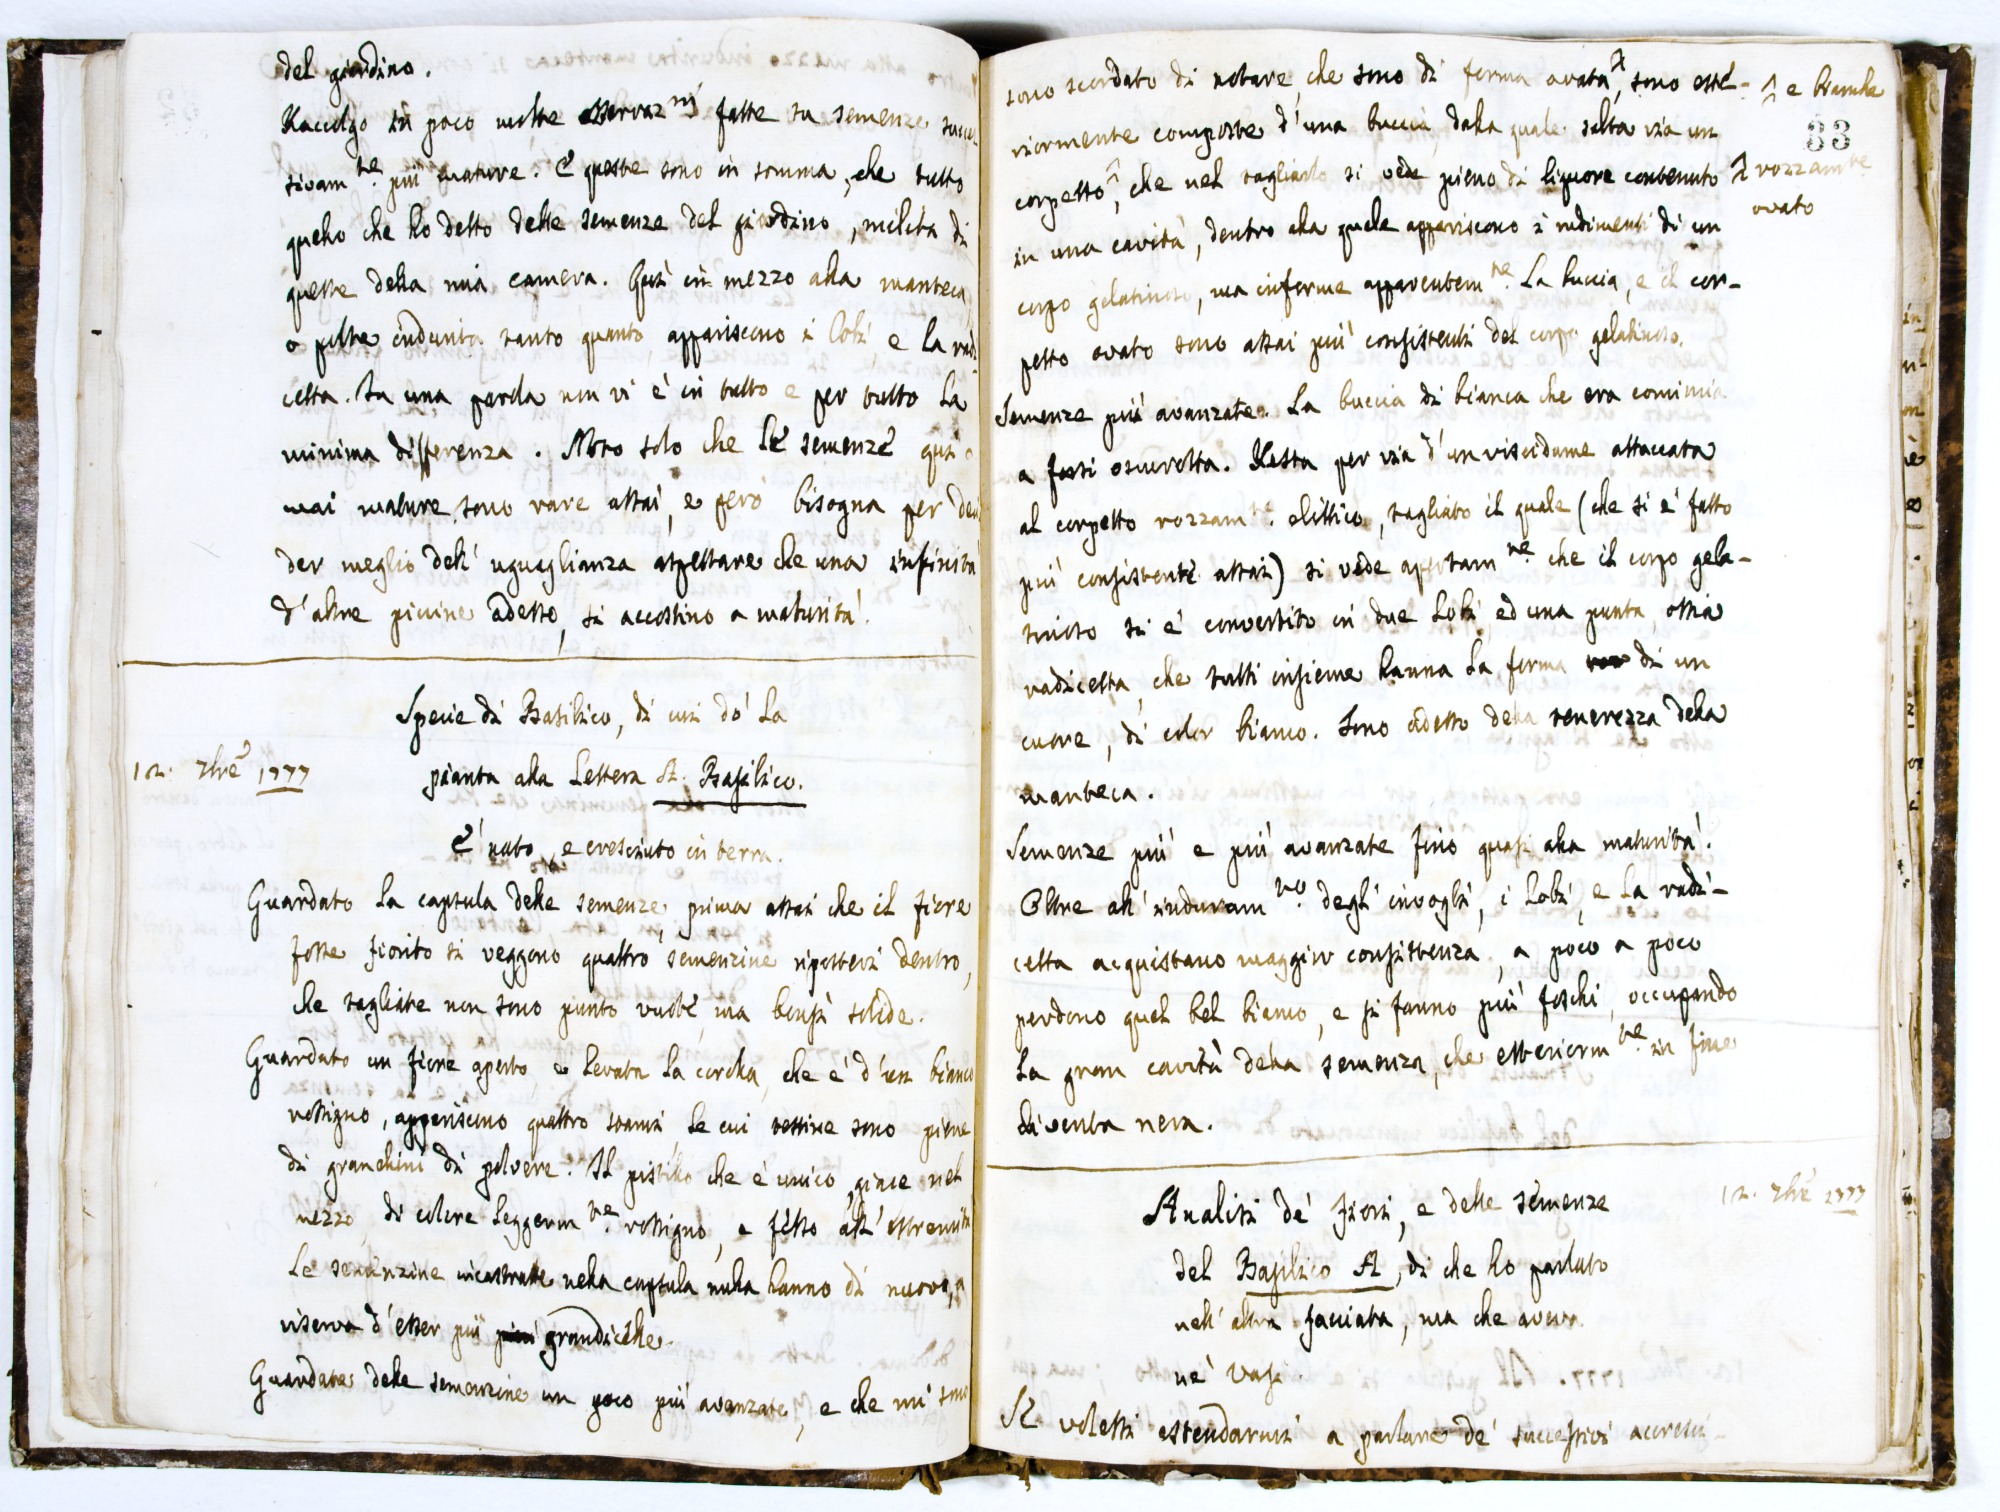 del giardino.
Raccolgo in poco molte osservaz.ni fatte su semenze succes
sivam.te più mature. E queste sono in somma, che tutto
quello che ho detto delle semenze del giardino, milita di
queste della mia camera. Quì in mezzo alla manteca,
o polte indurita tanto quanto appariscono i lobi e la radi
cetta. In una parola non vi è in tutto e per tutto la
minima differenza. Noto solo che le semenze quì
mai mature sono rare assai, e però bisogna per deci
der meglio dell' uguaglianza aspettare che una infinità
d'altre piccine adesso, si accostino a maturità.
Specie di Basilico, di cui do la
12. 7bre 1777
pianta alla Lettera A. Basilico.
E' nato, e cresciuto in terra.
Guardato la capsula delle semenze, prima assai che il fiore
fosse fiorito si veggono quattro semenzine ripostevi dentro,
che tagliate non sono punto vuote, ma bensì solide.
Guardato un fiore aperto e levata la corolla, che è d'un bianco
rossigno, appariscono quattro stami, le cui testine sono piene
di granellini di polvere. Il pistillo che è unico, giace nel
mezzo, di colore leggerm.te rossigno, e fesso all' estremità
Le semenzine incastrate nella capsula nulla hanno di nuovo, a
riserva d'esser più grandicelle.
Guardate delle semenzine un poco più avanzate, e che mi sono
sono scordato di notare, che sono di forma ovata ^, sono este-
^ e bianche
riormente composte d'una buccia dalla quale salta via un
33
corpetto ^, che nel tagliarlo si vede pieno di liquore contenuto
^ rozzam.te
ovato
in una cavità, dentro alla quale appariscono i rudimenti di un
corpo gelatinoso, ma informe apparentem.te. La buccia, e il cor-
petto ovato sono assai più consistenti del corpo gelatinoso.
Semenze più avanzate. La buccia di bianca che era comincia
a farsi oscuretta. Resta per via d'un viscidume attaccata
al corpetto rozzam.te elittico, tagliato il quale (che si è fatto
più consistente assai) si vede apertam.te che il corpo gela-
tinoso si è convertito in due lobi, ed una punta, ossia
radicetta, che tutti insieme hanna la forma di un
cuore, di color bianco. Sono adesso della tenerezza della
manteca.
Semenze più e più avanzate fino quasi alla maturità.
Oltre all' induram.to degli invogli, i lobi, e la radi-
cetta acquistano maggior consistenza, a poco a poco
perdono quel bel bianco, e si fanno più foschi, occupando
la gran cavità della semenza, che esteriorm.te in fine
diventa nera.
12. 7bre 1777
Analisi de' fiori, e delle semenze
del Basilico A, di che ho parlato
nell' altra facciata, ma che aveva
ne' vasi.
Se volessi estendarmi a parlare de' successivi accresci-